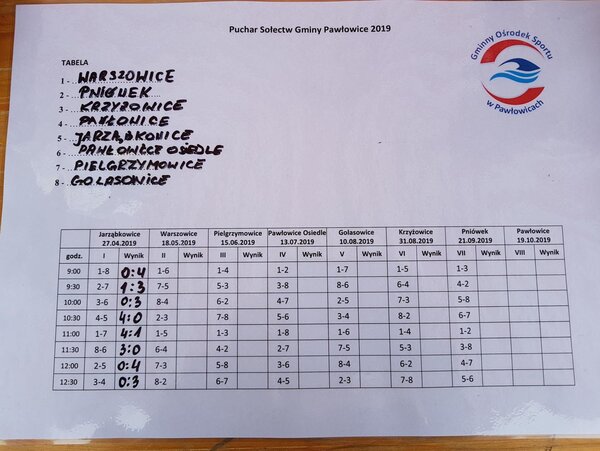 Puchar Sołectw Gminy Pawłowice 2019
Gminny Ośrodek Sportu
w Pawłowicach
TABELA
1 - WARSZOWICE
2 - PNIÓWEK
3 - KRZYŻOWICE
4 - PAWŁOWICE
5 - JARZĄBKOWICE
6 - PAWŁOWICE OSIEDLE
7 - PIELGRZYMOWICE
8 - GOLASOWICE
Jarząbkowice Warszowice Pielgrzymowice Pawłowice Osiedle Golasowice Krzyżowice Pniówek Pawłowice
27.04.2019 18.05.2019 15.06.2019 13.07.2019 10.08.2019 31.08.2019 21.09.2019 19.10.2019
godz. I Wynik II Wynik III Wynik IV Wynik V Wynik VI Wynik VII Wynik VIII Wynik
9:00 1-8 0:4 1-6 1-4 1-2 1-7 1-5 1-3
9:30 2-7 1:3 7-5 5-3 3-8 8-6 6-4 4-2
10:00 3-6 0:3 8-4 6-2 4-7 2-5 7-3 5-8
10:30 4-5 4:0 2-3 7-8 5-6 3-4 8-2 6-7
11:00 1-7 4:1 1-5 1-3 1-8 1-6 1-4 1-2
11:30 8-6 3:0 6-4 4-2 2-7 7-5 5-3 3-8
12:00 2-5 0:4 7-3 5-8 3-6 8-4 6-2 4-7
12:30 3-4 0:3 8-2 6-7 4-5 2-3 7-8 5-6